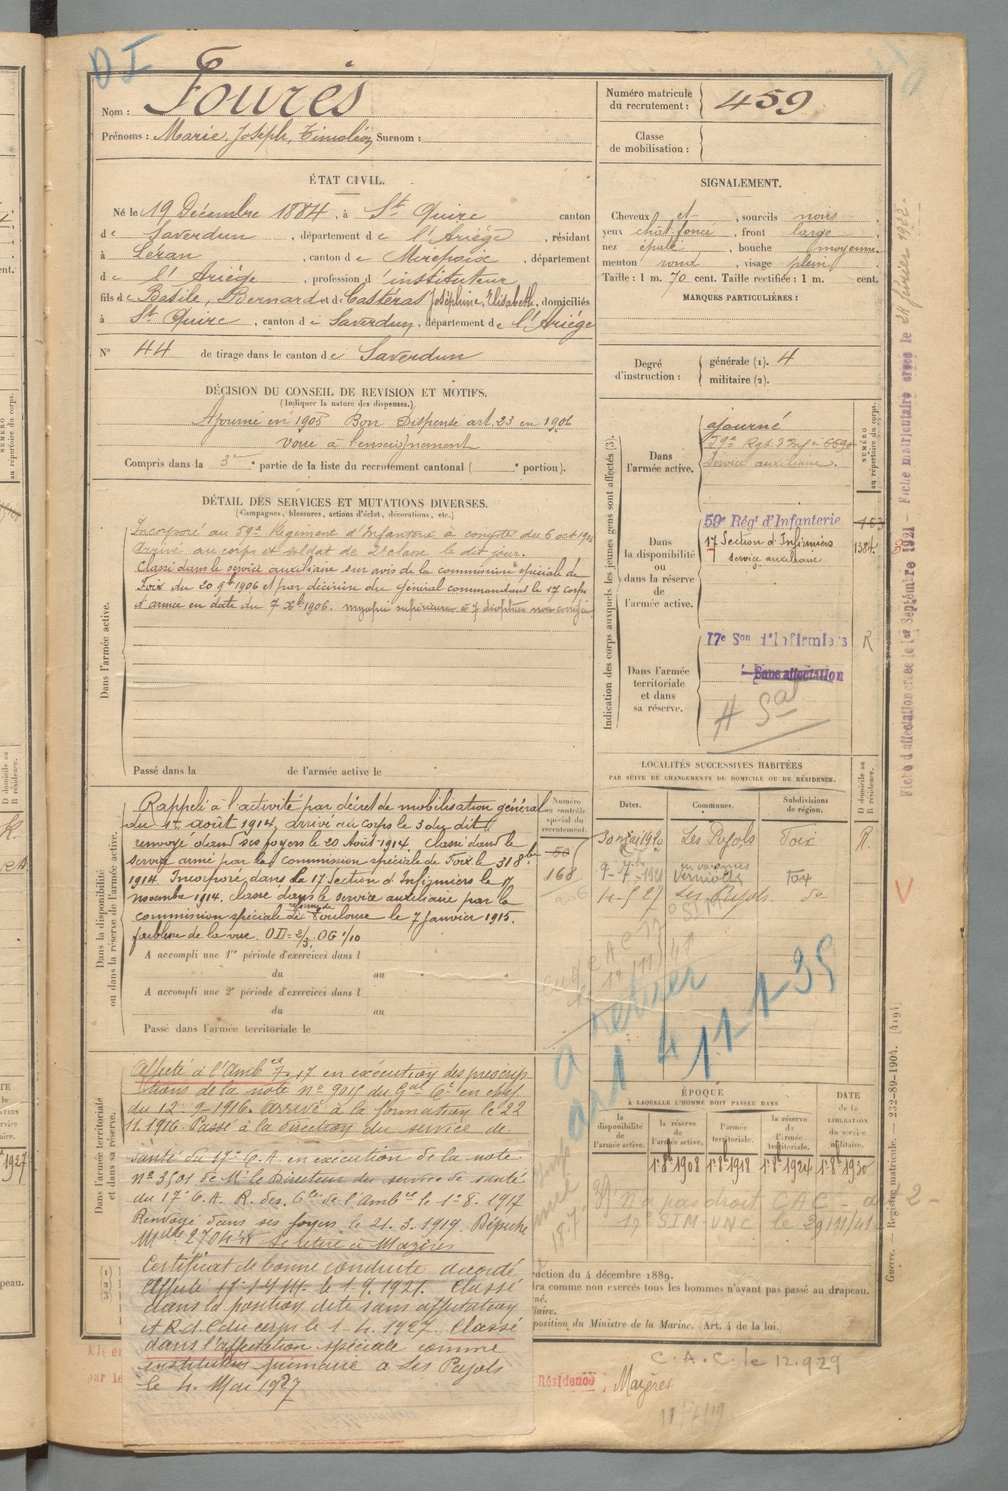 DI
Nom : Fourès
Prénoms : Marie, Joseph, Timoléon Surnom :
ÉTAT CIVIL.
Né le 19 Décembre 1884, à St Quirc canton
de Saverdun, département de l'Ariège, résidant
à Léran, canton de Mirepoix, département
de l'Ariège, profession d'instituteur
fils de Basile, Bernard et de Castéras Joséphine, Elisabeth, domiciliés
à St Quirc, canton de Saverdun, département de l'Ariège
N° 44 de tirage dans le canton de Saverdun
DÉCISION DU CONSEIL DE REVISION ET MOTIFS.
(Indiquer la nature des dispenses.)
Ajourné en 1905 Bon Dispensé art. 23 en 1906
voué à l'enseignement
Compris dans la 3e partie de la liste du recrutement cantonal ( portion).
DÉTAIL DES SERVICES ET MUTATIONS DIVERSES.
(Campagnes, blessures, actions d'éclat, décorations, etc.)
Dans l'armée active.
Incorporé au 59e Régiment d'Infanterie à compter du 6 oct 190
Arrivé au corps et soldat de 2e classe le dit jour.
Classé dans le service auxiliaire sur avis de la commission spéciale de
Foix du 20 9bre 1906 et par décision du général commandant le 17 corps
d'armée en date du 7 Xbre 1906. myopie supérieure à 7 dioptries non corrigée
Passé dans la de l'armée active le
Dans la disponibilité
ou dans la réserve de l'armée active.
Rappelé à l'activité par décret de mobilisation général
du 1er août 1914, arrivé au corps le 3 du dit,
renvoyé dans ses foyers le 20 Août 1914, Classé dans le
service armé par la Commission spéciale de Foix le 31 8bre
1914. Incorporé dans la 17 Section d'Infirmiers le 17
novembre 1914, classé dans le service auxiliaire par la
commission spéciale de Toulouse le 7 Janvier 1915.
faiblesse de la vue. OD = 2/3, OG 1/10
A accompli une 1re période d'exercices dans l
du au
A accompli une 2e période d'exercices dans l
du au
Passé dans l'armée territoriale le
Dans l'armée territoriale
et dans sa réserve.
Affecté à l'Ambce 7.17 en exécution des prescrip
tions de la note n° 9015 du Gal Ct en chef
du 12-9-1916. Arrivé à la formation le 22
11.1916. Passé à la Direction du service de
santé du 17e C.A. en exécution de la note
n° 3501 de Mr le Directeur du service de santé
du 17e C.A. R. des Ctes de l'Ambce le 1-8.1917
Renvoyé dans ses foyers le 21.3.1919. Dépêche
Se retire à Mazères
Certificat de bonne conduite accordé
le 1-9.1921. Classé
dans la position dite sans affectation
et R.d.C du corps le 1.4.1927. Classé
dans l'affectation spéciale comme
instituteur primaire à Les Pujols
le 4 Mai 1927
Numéro matricule
du recrutement : 459
Classe
de mobilisation :
SIGNALEMENT.
Cheveux et, sourcils noirs
yeux chat foncé, front large
nez épaté, bouche moyenne
menton rond, visage plein
Taille : 1 m. 70 cent. Taille rectifiée : 1 m. cent.
MARQUES PARTICULIÈRES :
Degré
d'instruction :
générale (1). 4
militaire (2).
Indication des corps auxquels les jeunes gens sont affectés (3).
NUMÉRO
au répertoire du corps.
Dans
l'armée active.
ajourné
59e Rgt d'Inf 6690
Service auxiliaire.
Dans
la disponibilité
ou
dans la réserve
de
l'armée active.
59e Régt d'Infanterie
17 Section d'Infirmiers 1384
service auxiliaire
Dans l'armée
territoriale
et dans
sa réserve.
17e Son d'Infirmiers R
Sans affectation
LOCALITÉS SUCCESSIVES HABITÉES
PAR SUITE DE CHANGEMENTS DE DOMICILE OU DE RÉSIDENCE.
Numéro
au contrôle
spécial du
recrutement.
50
168
Dates. Communes. Subdivisions
de région.
D domicile ou
R résidence.
1920 Les Pujols Foix R.
9-7-1921 en vacances Verniolle Foix
14-5 27 Les Pujols do
V
à relever
4 11 1-39
ÉPOQUE
À LAQUELLE L'HOMME DOIT PASSER DANS
DATE
de la
LIBÉRATION
du service
militaire.
la
disponibilité
de
l'armée active.
la réserve
de
l'armée active.
l'armée
territoriale.
la réserve
de
l'armée
territoriale.
1er 8bre 1908 1er 8bre 1918 1er 8bre 1924 1er 8bre 1930
N'a pas droit CAC
17e SIM-VNC le 29/11/41
ruction du 4 décembre 1889.
dra comme non exercés tous les hommes n'ayant pas passé au drapeau.
position du Ministre de la Marine. (Art. 4 de la loi.)
C.A.C. le 12.9 29
Résidence Mazères
Fiche d'affectation créée le 1er Septembre 1921 — Fiche matriculaire créée le 24 février 1922
Guerre. — Registre matricule. — 232-89-1904. (4194)